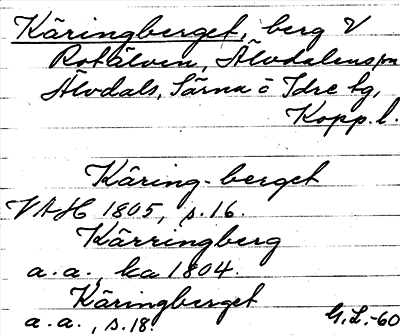 Käringberget, berg V
Rotälven, Älvdalens sn
Älvdals, Särna o Idre tg,
Kopp. l.
Käring-berget
VAH 1805, s. 16.
Kärringberg
a. a., ka 1804.
Käringberget
a. a., s. 18.
G.L.-60